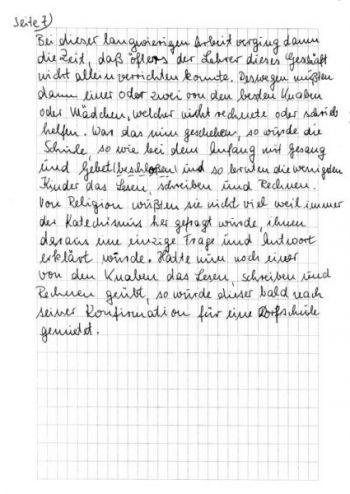 Seite 7)
Bei dieser langwierigen Arbeit verging dann
die Zeit, daß öfters der Lehrer dieses Geschäft
nicht allein verrichten konnte. Deswegen müßten
dann einer oder zwei von den besten Knaben
oder Mädchen, welcher nicht rechnete oder schrieb
helfen. War das nun geschehen, so würde die
Schule so wie bei dem Anfang mit gesang
und Gebet (beschloßen) und so lernten die wenigsten
Kinder das Lesen, schreiben und Rechnen.
Von Religion wüßten sie nicht viel weil immer
der Katechismus her gefragt würde, ihnen
daraus nie einzige Frage und Antwort
erklärt würde. Hatte nun noch einer
von den Knaben das Lesen, schreiben und
Rechnen geübt, so würde dieser bald nach
seiner Konfirmation für eine Dorfschule
gemietet.